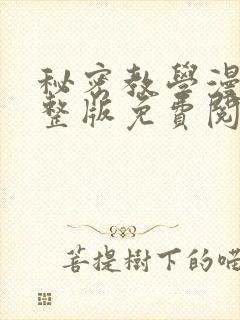 秘密教學漫
整版免費閱
菩提樹下的喵